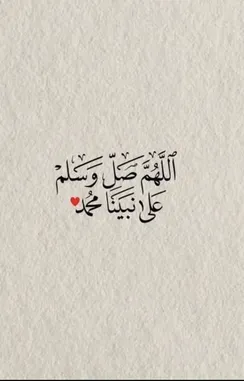 ٱللَّهُمَّ صَلِّ وَسَلِّمْ
عَلَى نَبِيِّنَا مُحَمَّد